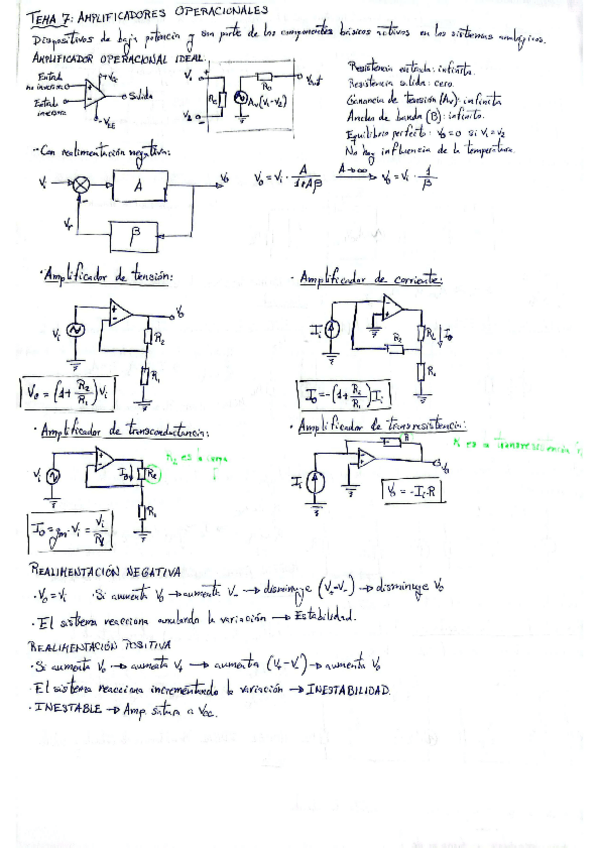 TEMA 7: AMPLIFICADORES OPERACIONALES
Dispositivos de baja potencia y son parte de los componentes básicos activos en los sistemas analógicos.
AMPLIFICADOR OPERACIONAL IDEAL.
Entrada no inversora
Entrada inversora
+Vcc
-VEE
Salida
V1
V2
Ri
Ro
Av(V1-V2)
Vout
Resistencia entrada: infinita.
Resistencia salida: cero.
Ganancia de tensión (Av): infinita
Ancho de banda (B): infinito.
Equilibrio perfecto: Vo=0 si V1=V2
No hay influencia de la temperatura.
·Con realimentación negativa:
Vi
A
Vo
Vr
β
Vo = Vi · A/(1+Aβ) A→∞ Vo = Vi · 1/β
·Amplificador de tensión:
Vi
Vo
R2
R1
Vo = (1+R2/R1)Vi
·Amplificador de corriente:
Ii
R2
RL
Io
R1
Io = -(1+R2/R1)Ii
·Amplificador de transconductancia:
RL es la carga
Vi
Io
RL
R1
Io = gm·Vi = Vi/R1
·Amplificador de transresistencia:
R es la transresistencia
R
Ii
Vo
Vo = -Ii·R
REALIMENTACIÓN NEGATIVA
·Vo=Vi ·Si aumenta Vo → aumenta V- → disminuye (V+-V-) → disminuye Vo
·El sistema reacciona anulando la variación → Estabilidad.
REALIMENTACIÓN POSITIVA
·Si aumenta Vo → aumenta V+ → aumenta (V+-V-) → aumenta Vo
·El sistema reacciona incrementando la variación → INESTABILIDAD.
·INESTABLE → Amp. satura a Vcc.